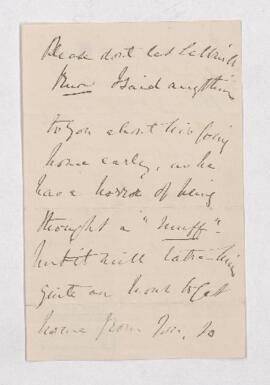 Please dont let Patrick
know I said anything
to you about his going
home early, as he
has a horror of being
thought a "muff" -
but it will take him
quite an hour to get
home from you, so